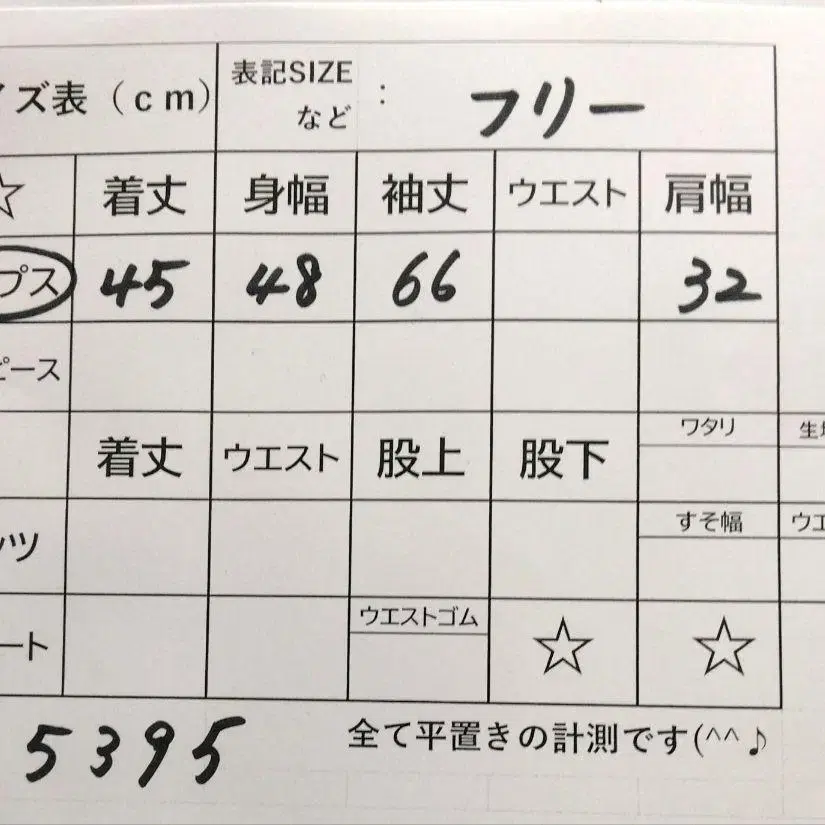 イズ表（ｃｍ） 表記SIZE
など ： フリー
☆ 着丈 身幅 袖丈 ウエスト 肩幅
プス 45 48 66 32
ピース
着丈 ウエスト 股上 股下 ワタリ 生地
ンツ すそ幅 ウエ
ート ウエストゴム ☆ ☆
5395 全て平置きの計測です(^^♪